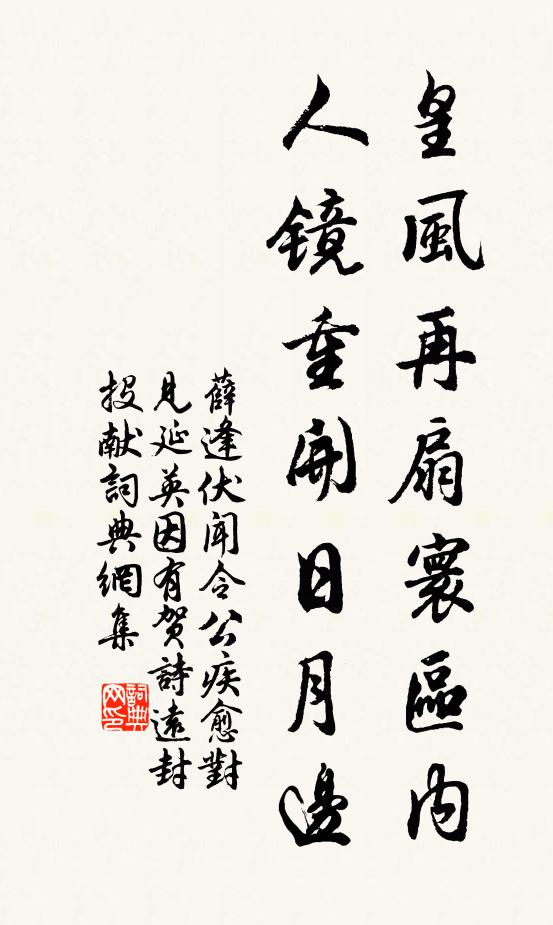 皇風再扇寰區内
人镜重開日月邊
薛逢伏闻令公疾愈對
见延英因有贺詩遠封
投献詞典網集
詞典
网印